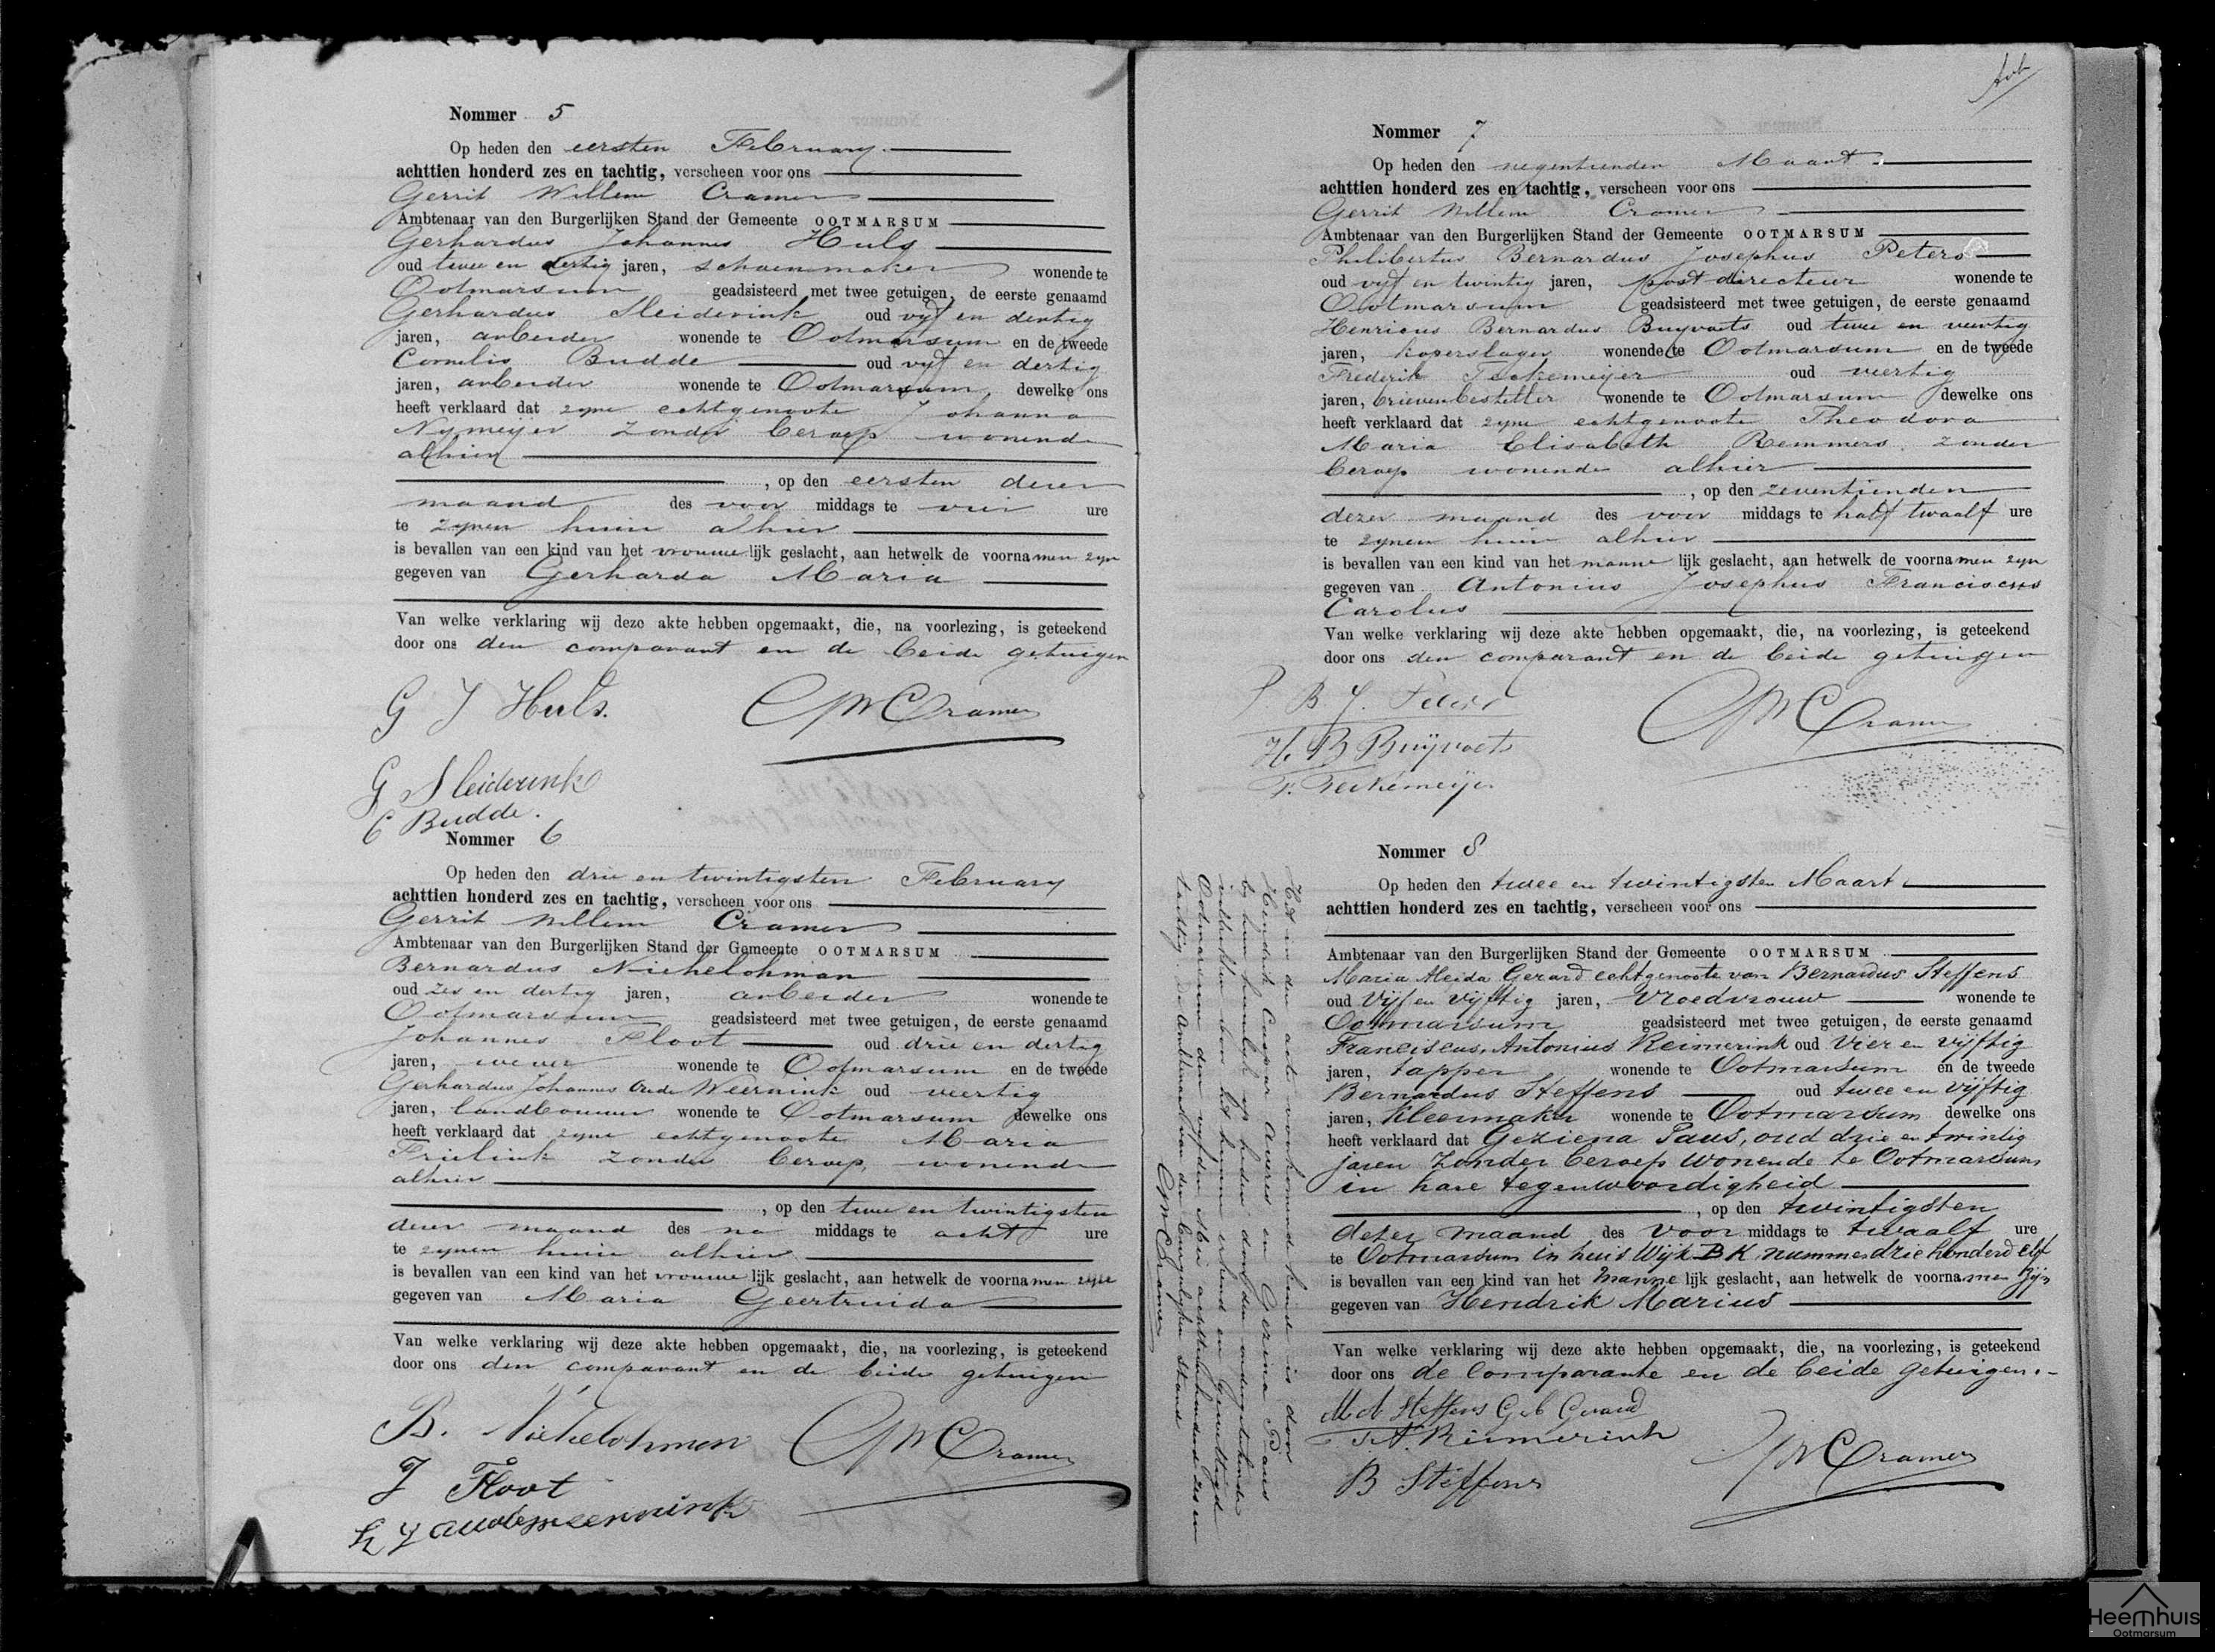 Nommer 5
Op heden den eersten February
achttien honderd zes en tachtig, verscheen voor ons
Gerrit Willem Cramer
Ambtenaar van den Burgerlijken Stand der Gemeente OOTMARSUM
Gerhardus Johannes Huls
oud twee en dertig jaren, schoenmaker wonende te
Ootmarsum geadsisteerd met twee getuigen, de eerste genaamd
Gerhardus Sleiderink oud vyf en dertig
jaren, arbeider wonende te Ootmarsum en de tweede
Cornelis Budde oud vyf en dertig
jaren, arbeider wonende te Ootmarsum, dewelke ons
heeft verklaard dat zyne echtgenoote Johanna
Nymeijer zonder beroep wonende
alhier
, op den eersten dezer
maand des voor middags te vier ure
te zynen huize alhier
is bevallen van een kind van het vrouwe lijk geslacht, aan hetwelk de voornamen zyn
gegeven van Gerharda Maria
Van welke verklaring wij deze akte hebben opgemaakt, die, na voorlezing, is geteekend
door ons den comparant en de beide getuigen
G J Huls. GWCramer
G Sleiderink
C Budde.
Nommer 6
Op heden den drie en twintigsten February
achttien honderd zes en tachtig, verscheen voor ons
Gerrit Willem Cramer
Ambtenaar van den Burgerlijken Stand der Gemeente OOTMARSUM
Bernardus Nichelohman
oud zes en dertig jaren, arbeider wonende te
Ootmarsum geadsisteerd met twee getuigen, de eerste genaamd
Johannes Floot oud drie en dertig
jaren, wever wonende te Ootmarsum en de tweede
Gerhardus Johannes Oude Weernink oud veertig
jaren, landbouwer wonende te Ootmarsum dewelke ons
heeft verklaard dat zyne echtgenoote Maria
Frielink zonder beroep, wonende
alhier
, op den twee en twintigsten
dezer maand des na middags te acht ure
te zynen huize alhier
is bevallen van een kind van het vrouwe lijk geslacht, aan hetwelk de voornamen zyn
gegeven van Maria Geertruida
Van welke verklaring wij deze akte hebben opgemaakt, die, na voorlezing, is geteekend
door ons den comparant en de beide getuigen
B. Nichelohman GWCramer
J Floot
Nommer 7
Op heden den negentienden Maart
achttien honderd zes en tachtig, verscheen voor ons
Gerrit Willem Cramer
Ambtenaar van den Burgerlijken Stand der Gemeente OOTMARSUM
Philibertus Bernardus Josephus Peters
oud vyf en twintig jaren, postdirecteur wonende te
Ootmarsum geadsisteerd met twee getuigen, de eerste genaamd
Henricus Bernardus Buyvoets oud twee en veertig
jaren, koperslager wonende te Ootmarsum en de tweede
Frederik Teckemeijer oud veertig
jaren, brievenbesteller wonende te Ootmarsum dewelke ons
heeft verklaard dat zyne echtgenoote Theodora
Maria Elisabeth Remmers zonder
beroep wonende alhier
, op den zeventienden
dezer maand des voor middags te half twaalf ure
te zynen huize alhier
is bevallen van een kind van het manne lijk geslacht, aan hetwelk de voornamen zyn
gegeven van Antonius Josephus Franciscus
Carolus
Van welke verklaring wij deze akte hebben opgemaakt, die, na voorlezing, is geteekend
door ons den comparant en de beide getuigen
P B J. Peters GWCramer
H. B Buÿvoets
F. Teckemeijer
Nommer 8
Op heden den twee en twintigsten Maart
achttien honderd zes en tachtig, verscheen voor ons
Ambtenaar van den Burgerlijken Stand der Gemeente OOTMARSUM
Maria Aleida Gerard echtgenoote van Bernardus Steffens
oud Vijf en Vijftig jaren, Vroedvrouw wonende te
Ootmarsum geadsisteerd met twee getuigen, de eerste genaamd
Franciscus Antonius Reimerink oud Vier en Vijftig
jaren, tapper wonende te Ootmarsum en de tweede
Bernardus Steffens oud twee en Vijftig
jaren, Kleermaker wonende te Ootmarsum dewelke ons
heeft verklaard dat Geziena Paus, oud drie en twintig
jaren zonder beroep wonende te Ootmarsum
in hare tegenwoordigheid
, op den twintigsten
dezer maand des Voor middags te twaalf ure
te Ootmarsum in huis Wijk B K nummer drie honderd elf
is bevallen van een kind van het manne lijk geslacht, aan hetwelk de voornamen Zijn
gegeven van Hendrik Marius
Van welke verklaring wij deze akte hebben opgemaakt, die, na voorlezing, is geteekend
door ons de Comparante en de beide getuigen.
M A Steffens Geb Gerard
F.A. Reimerink GWCramer
B Steffens
Het in de acte voorkomend kind is door
Hendrik Caspar Averes en Gezina Paus
by hun huwelyk op heden den
voltrokken voor het hunne erkend en gewettigd
Ootmarsum den vyfden Mei achttienhonderd zes en
tachtig. De Ambtenaar van den burgerlyken stand
GWCramer
Heemhuis
Ootmarsum